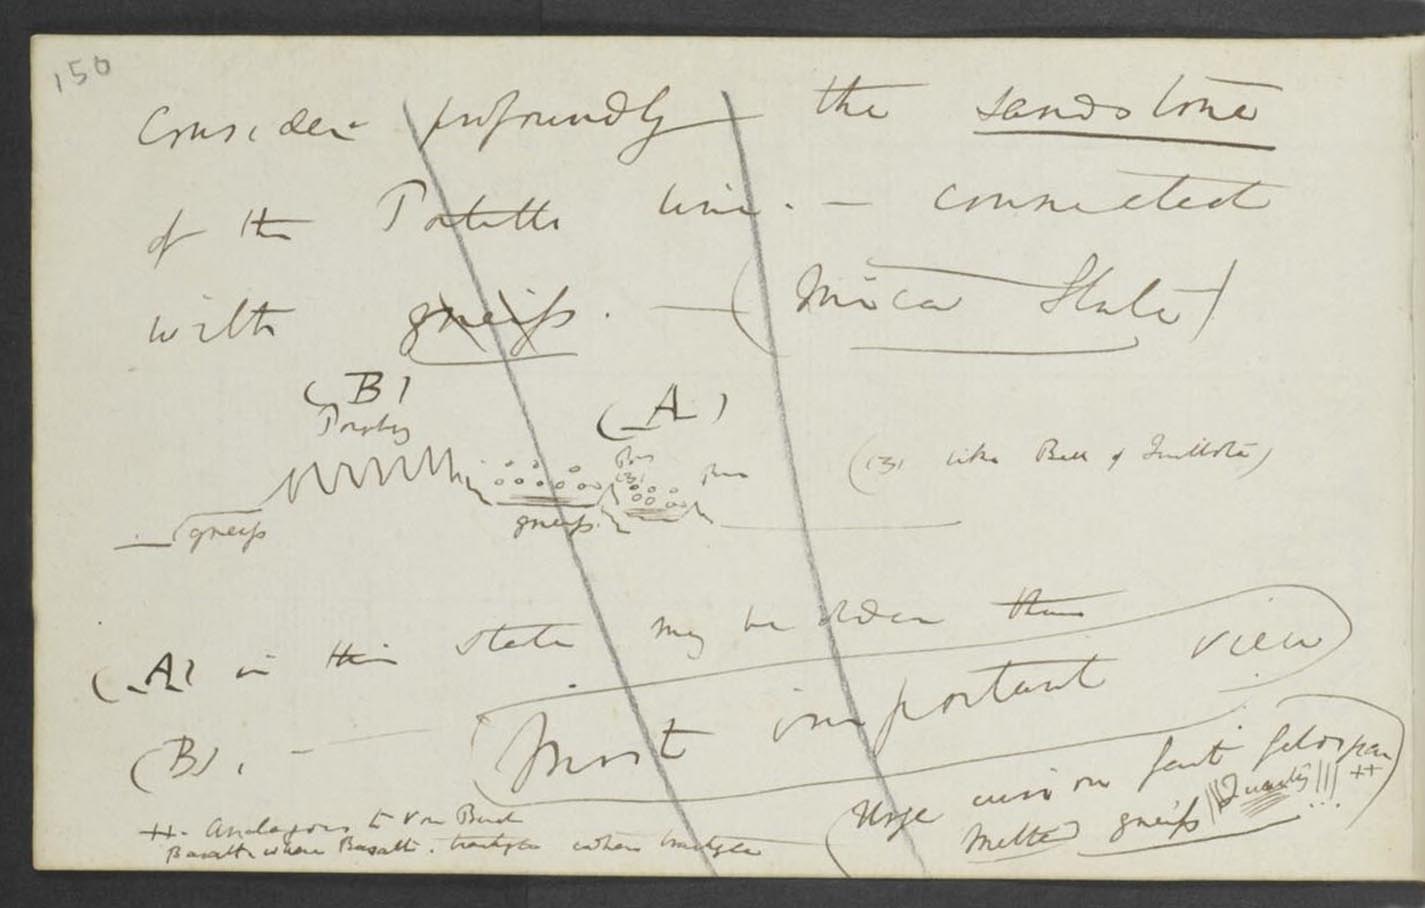 150
Consider profoundly the sandstone
of the Portillo line. — connected
with gneiss. — (Mica Slate)
(B)
(A)
Porphry
(3) like Bell of Quillota)
gneiss
gneiss
(A) in this state may be older than
(B). — Most important view
Urge curious fact felspar
melted gneiss Quartz!!! ++
++. Analogous to Von Buch
Basalt where Basalt. trachyte where trachyte